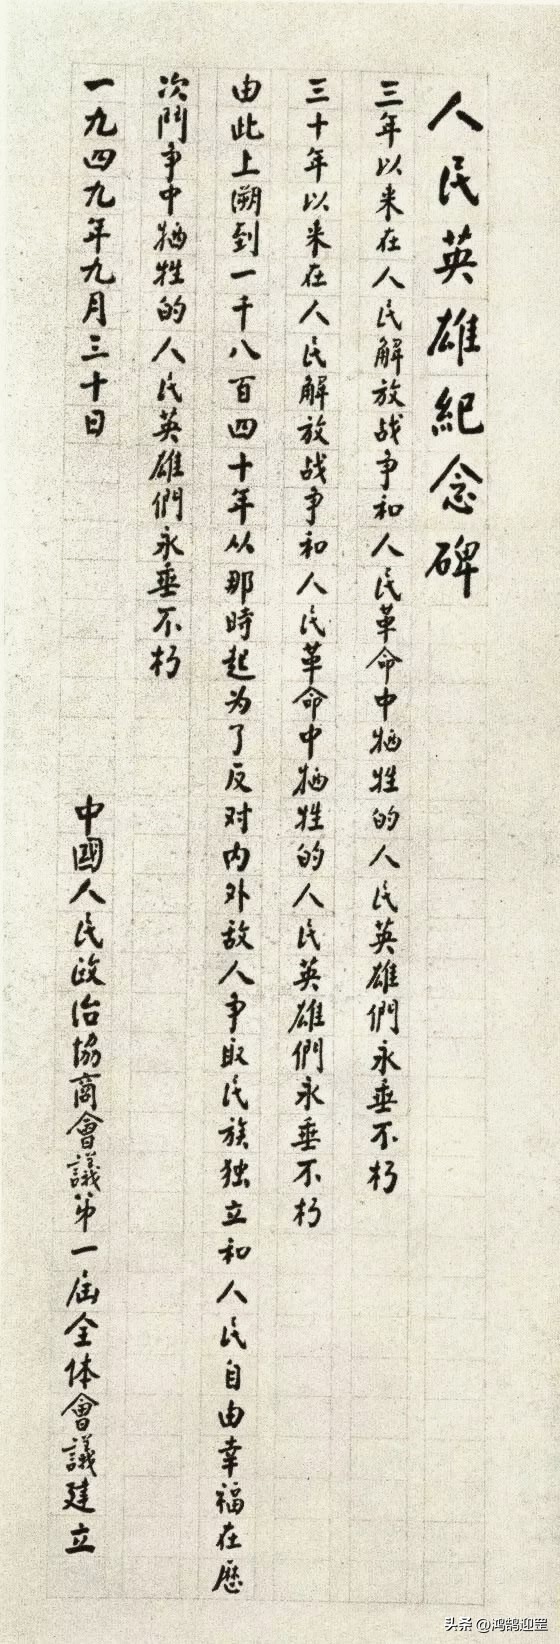 人民英雄紀念碑
三年以来在人民解放战争和人民革命中牺牲的人民英雄們永垂不朽
三十年以来在人民解放战争和人民革命中牺牲的人民英雄們永垂不朽
由此上溯到一千八百四十年从那時起为了反对内外敌人争取民族独立和人民自由幸福在歷
次鬥争中牺牲的人民英雄們永垂不朽
一九四九年九月三十日
中國人民政治協商會議第一屆全体會議建立
头条 @鸿鹄迎罡